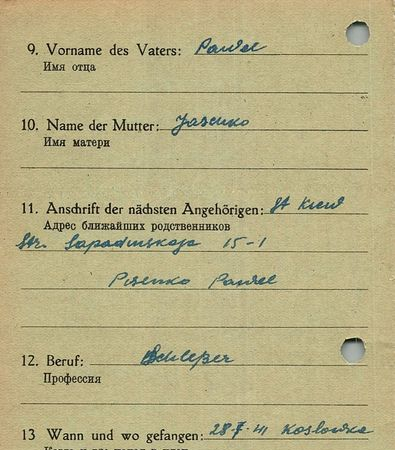 9. Vorname des Vaters: Pawel
Имя отца
10. Name der Mutter: Jasenko
Имя матери
11. Anschrift der nächsten Angehörigen: St Kiew
Адрес ближайших родственников
Str. Sapadinskaja 15-1
Pisenko Pawel
12. Beruf: Schlosser
Профессия
13 Wann und wo gefangen: 28.7.41 Koslowka